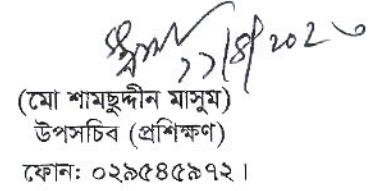 ১১/৪/২০২৩
(মো শামছুদ্দীন মাসুম)
উপসচিব (প্রশিক্ষণ)
ফোন: ০২৯৫৪৫৯৭২।